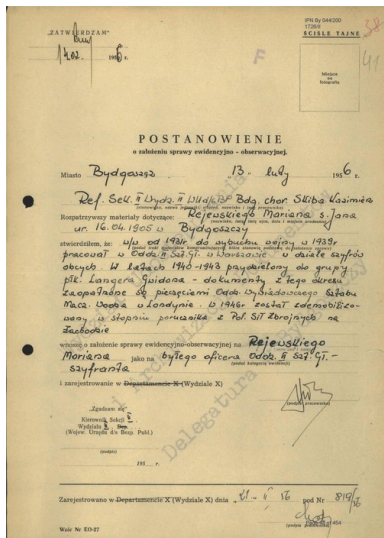 "ZATWIERDZAM"
IPN By 044/200
ŚCIŚLE TAJNE
38
41
14 02. 1956 r.
Miejsce
na
fotografię
POSTANOWIENIE
o założeniu sprawy ewidencyjno – obserwacyjnej.
Miasto Bydgoszcz 13 – luty 1956 r.
Ref. Sek. II Wydz. II WUdsBP Bdg. chor. Skiba Kazimierz
Rozpatrzywszy materiały dotyczące: Rejewskiego Mariana s. Jana
ur. 16.04.1905 w Bydgoszczy
stwierdziłem, że: w/w od 1931r do wybuchu wojny w 1939r
pracował w Oddz. II Szt. Gł. w Warszawie w dziale szyfrów
obcych. W latach 1940-1943 przydzielony do grupy
płk. Langera Gwidona – dokumenty z tego okresu
zaopatrzone są pieczęciami Oddz. Sztabu
Nacz. Wodza w Londynie. W 1946r został zdemobilizo-
wany w stopniu porucznika z Pol. Sił Zbrojnych na
Zachodzie
wnoszę o założenie sprawy ewidencyjno-obserwacyjnej na Rejewskiego
Mariana jako na byłego oficera Oddz. II Szt. Gł. –
szyfranta
i zarejestrowanie w Departamencie X (Wydziale X)
"Zgadzam się"
Kierownik Sekcji II
Wydziału II
(Wojew. Urzędu d/s Bezp. Publ.)
(podpis)
195 r.
Zarejestrowano w Departamencie X (Wydziale X) dnia "21" – II 56 pod Nr 819/56
Wzór Nr EO-27